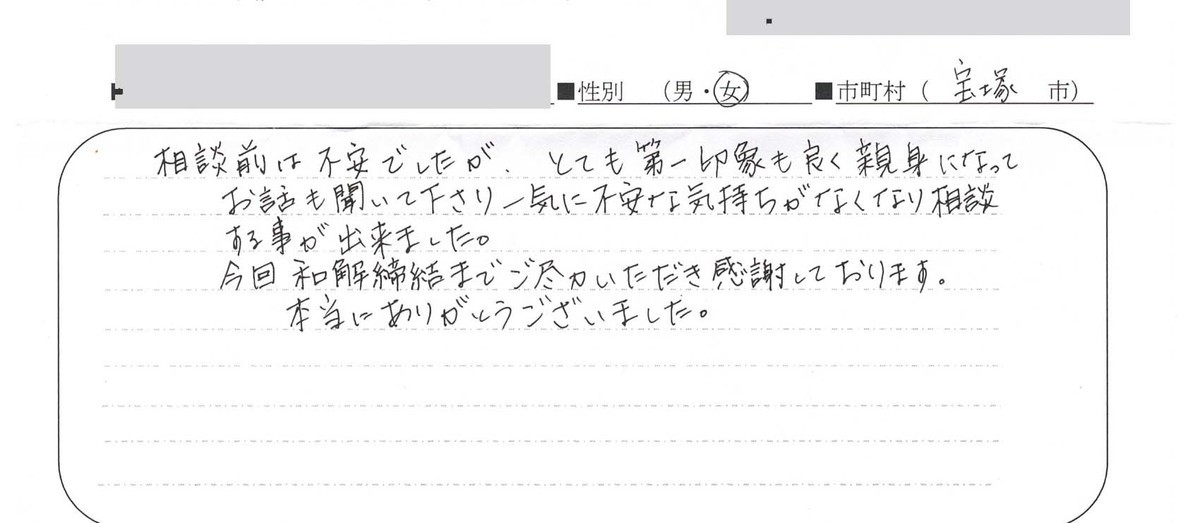 ■性別 （男・女） ■市町村（ 宝塚 市）
相談前は不安でしたが、とても第一印象も良く親身になって
お話も聞いて下さり一気に不安な気持ちがなくなり相談
する事が出来ました。
今回和解締結までご尽力いただき感謝しております。
本当にありがとうございました。